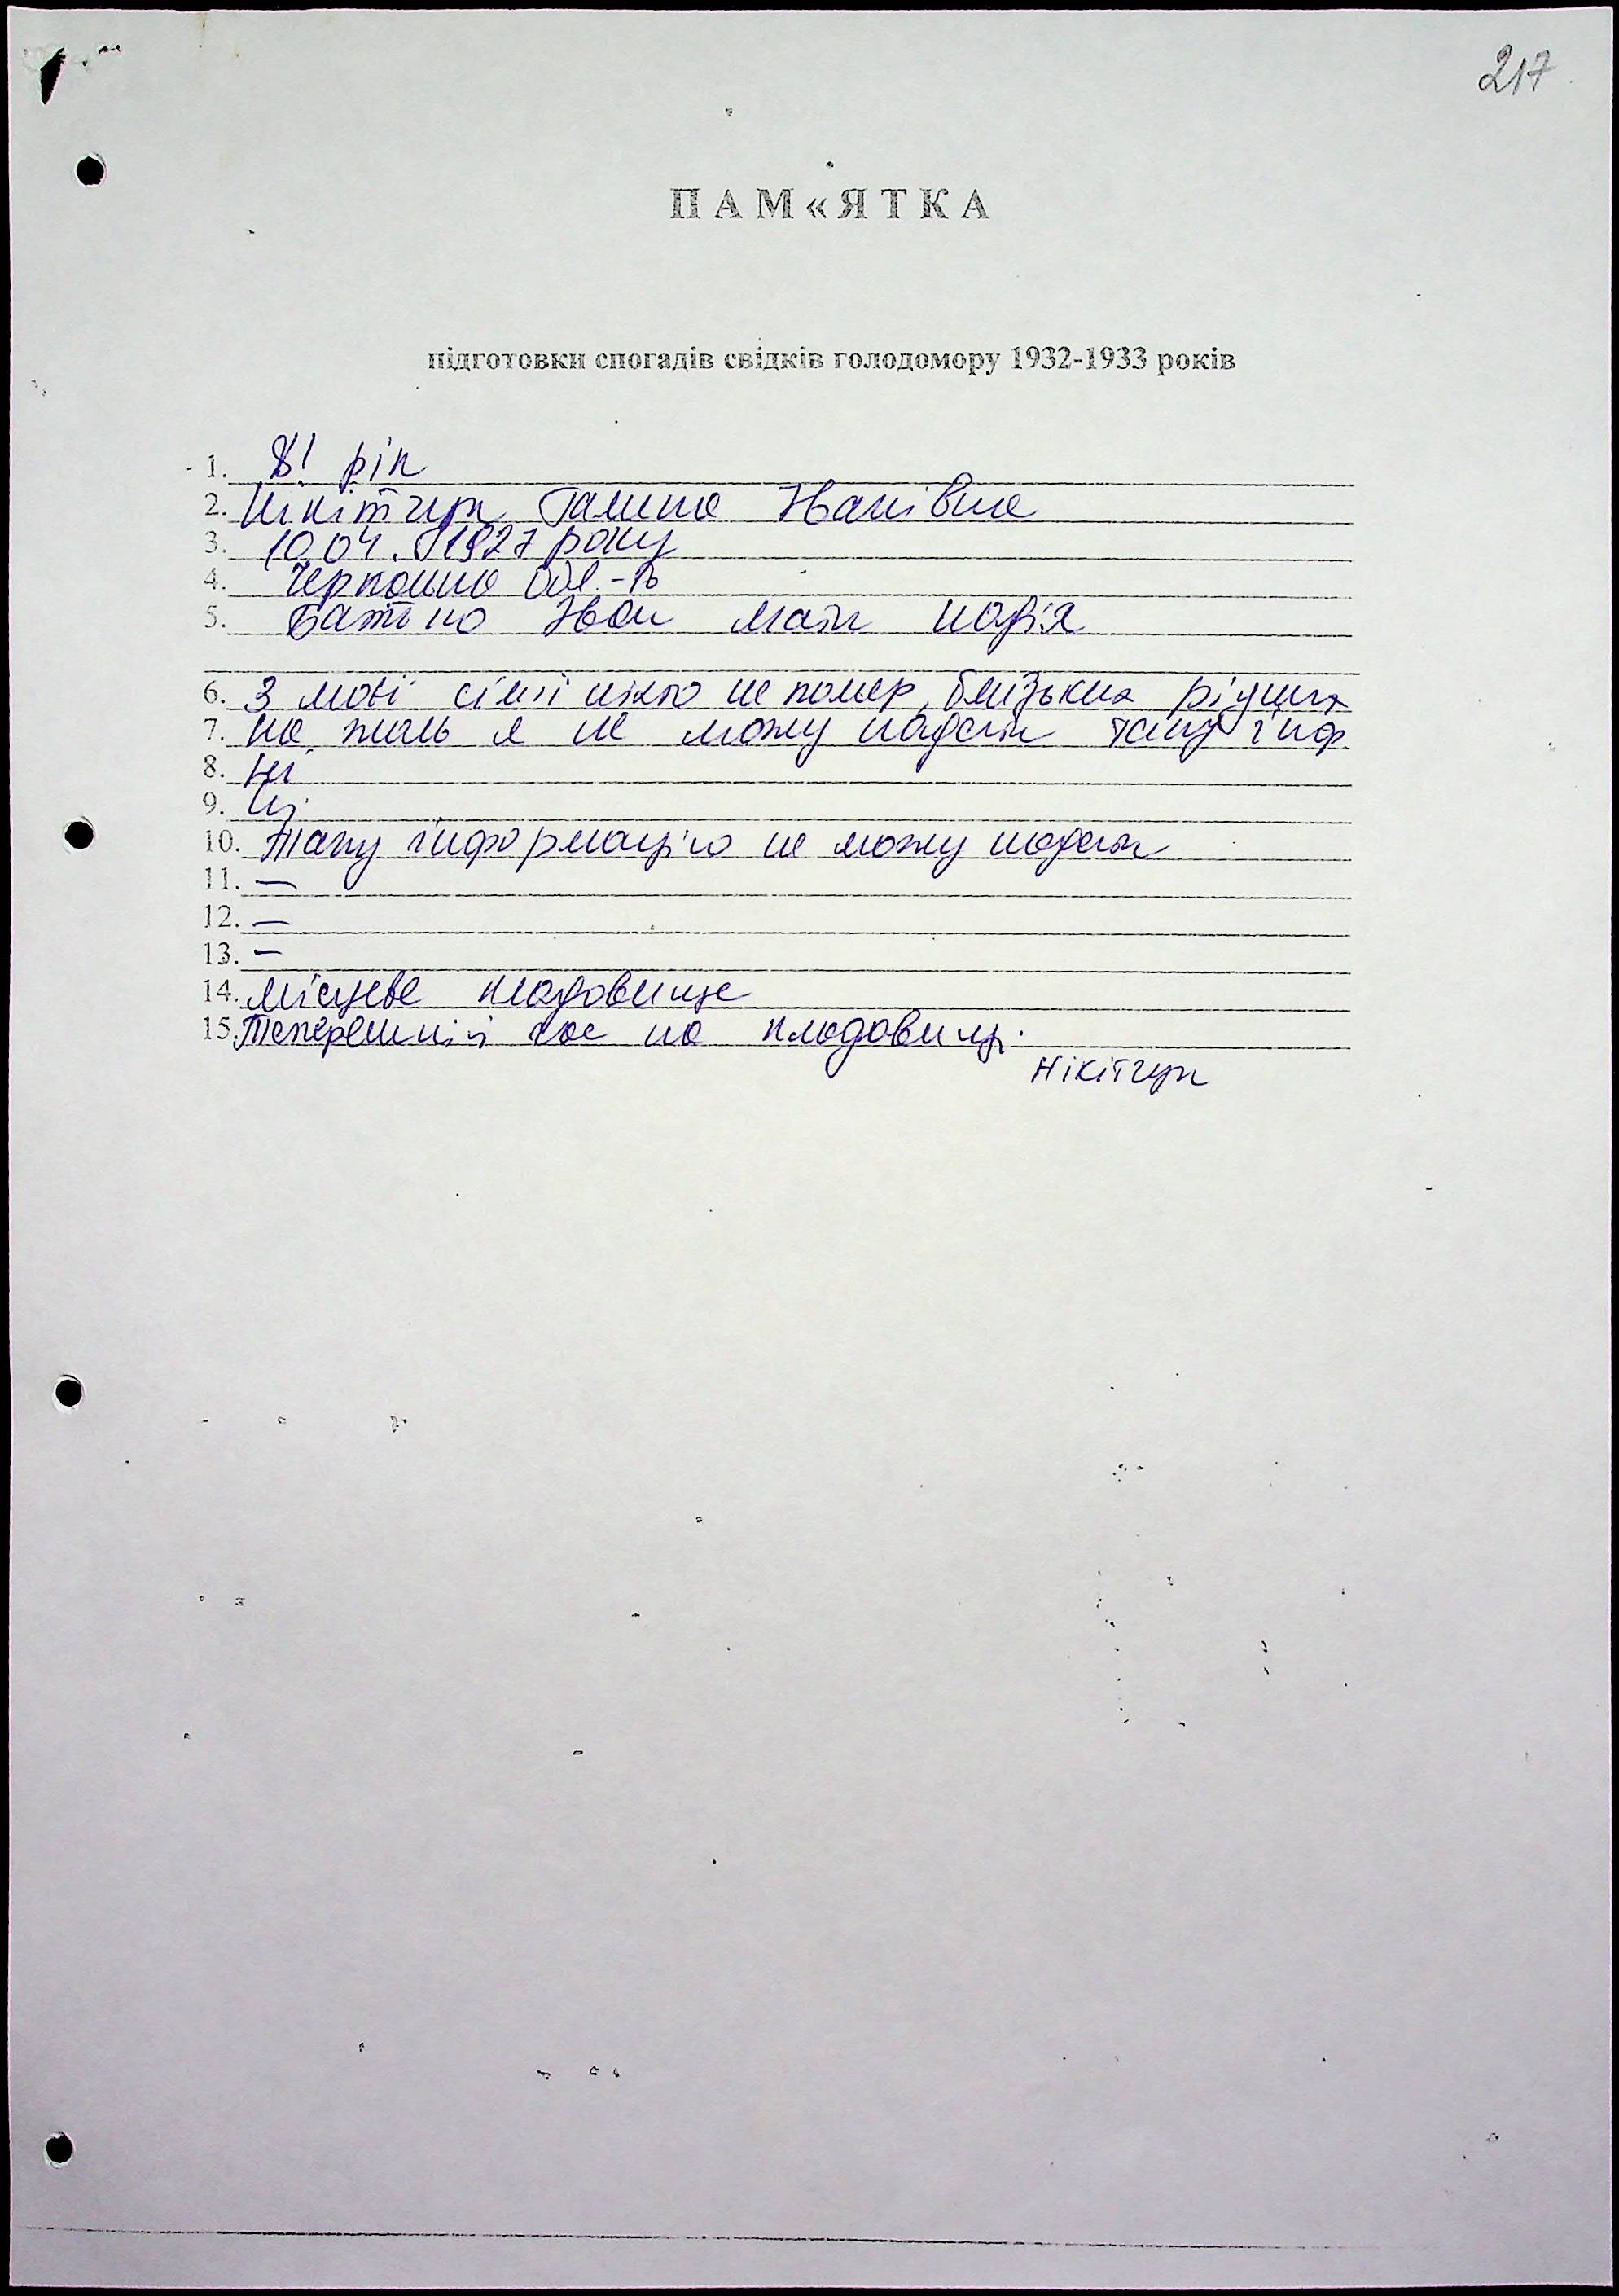 217
ПАМ«ЯТКА
підготовки спогадів свідків голодомору 1932-1933 років
1. 81 рік
2. Нікітчук Галина Іванівна
3. 10.04.1927 року
4. Черкаська обл-ть
5. Батько Іван мати Надія
6. З моєї сім'ї ніхто не помер, близьких рідних
7. на жаль я не можу надати таку інф
8. Ні
9. Ні
10. Таку інформацію не можу надати
11. —
12. —
13. —
14. місцеве кладовище
15. Теперешній час на кладовищі.
Нікітчук